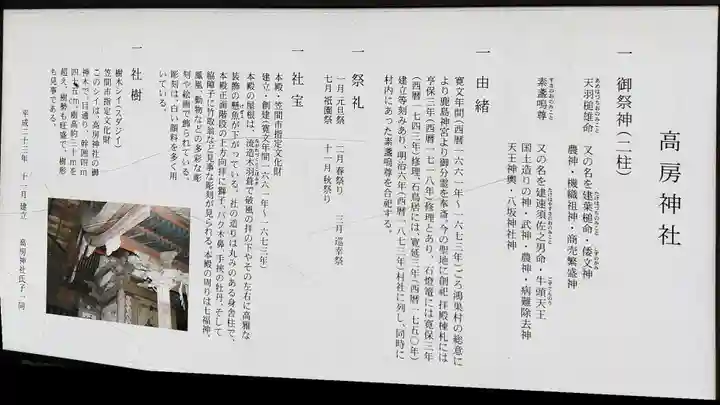 高房神社
一 御祭神(二柱)
天羽槌雄命 又の名を建葉槌命・倭文神
農神・機織祖神・商売繁盛神
素盞嗚尊 又の名を建速須佐之男命・牛頭天王
国土造りの神・武神・農神・病難除去神
天王神輿・八坂神社神
一 由緒
寛文年間(西暦一六六一年～一六七三年)ごろ鴻巣村の総意に
より鹿島神宮より御分霊を奉斎。今の聖地に創祀 拝殿棟札には
亨保三年(西暦一七一八年)修理とあり、石燈篭には寛保三年
(西暦一七四三年)修理、石鳥居には、寛延三年(西暦一七五〇年)
建立等刻みあり、明治六年(西暦一八七三年)村社に列し、同時に
村内にあった素盞嗚尊を合祀する。
一 祭礼
一月 元旦祭 二月 春祭り 三月 巡幸祭
七月 祇園祭 十一月 秋祭り
一 社宝
本殿・笠間市指定文化財
建立・創建(寛文年間一六六一年～一六七三年)
本殿の屋根は、流造大羽葺で破風の拝の下やその左右に高雅な
装飾の懸魚が下がっている。社の造りは丸みのある身舎柱で、
本殿正面階段の上方向拝に獅子、バク木鼻、手挾の牡丹、そして
脇障子に竹取翁など見事な彫刻が見られる。本殿の周りは七福神、
鳳凰、動物などの多彩な彫
刻や絵画で飾られている。
彫刻は、白い顔料を多く用
いている。
一 社樹
樹木シイ(スダジイ)
笠間市指定文化財
このシイは、高房神社の御
神木で、目通り、幹囲四m
四十五cm、樹高約三十mを
超え、樹勢も旺盛で、樹形
も見事である。
平成二十三年 十一月建立 高房神社氏子一同